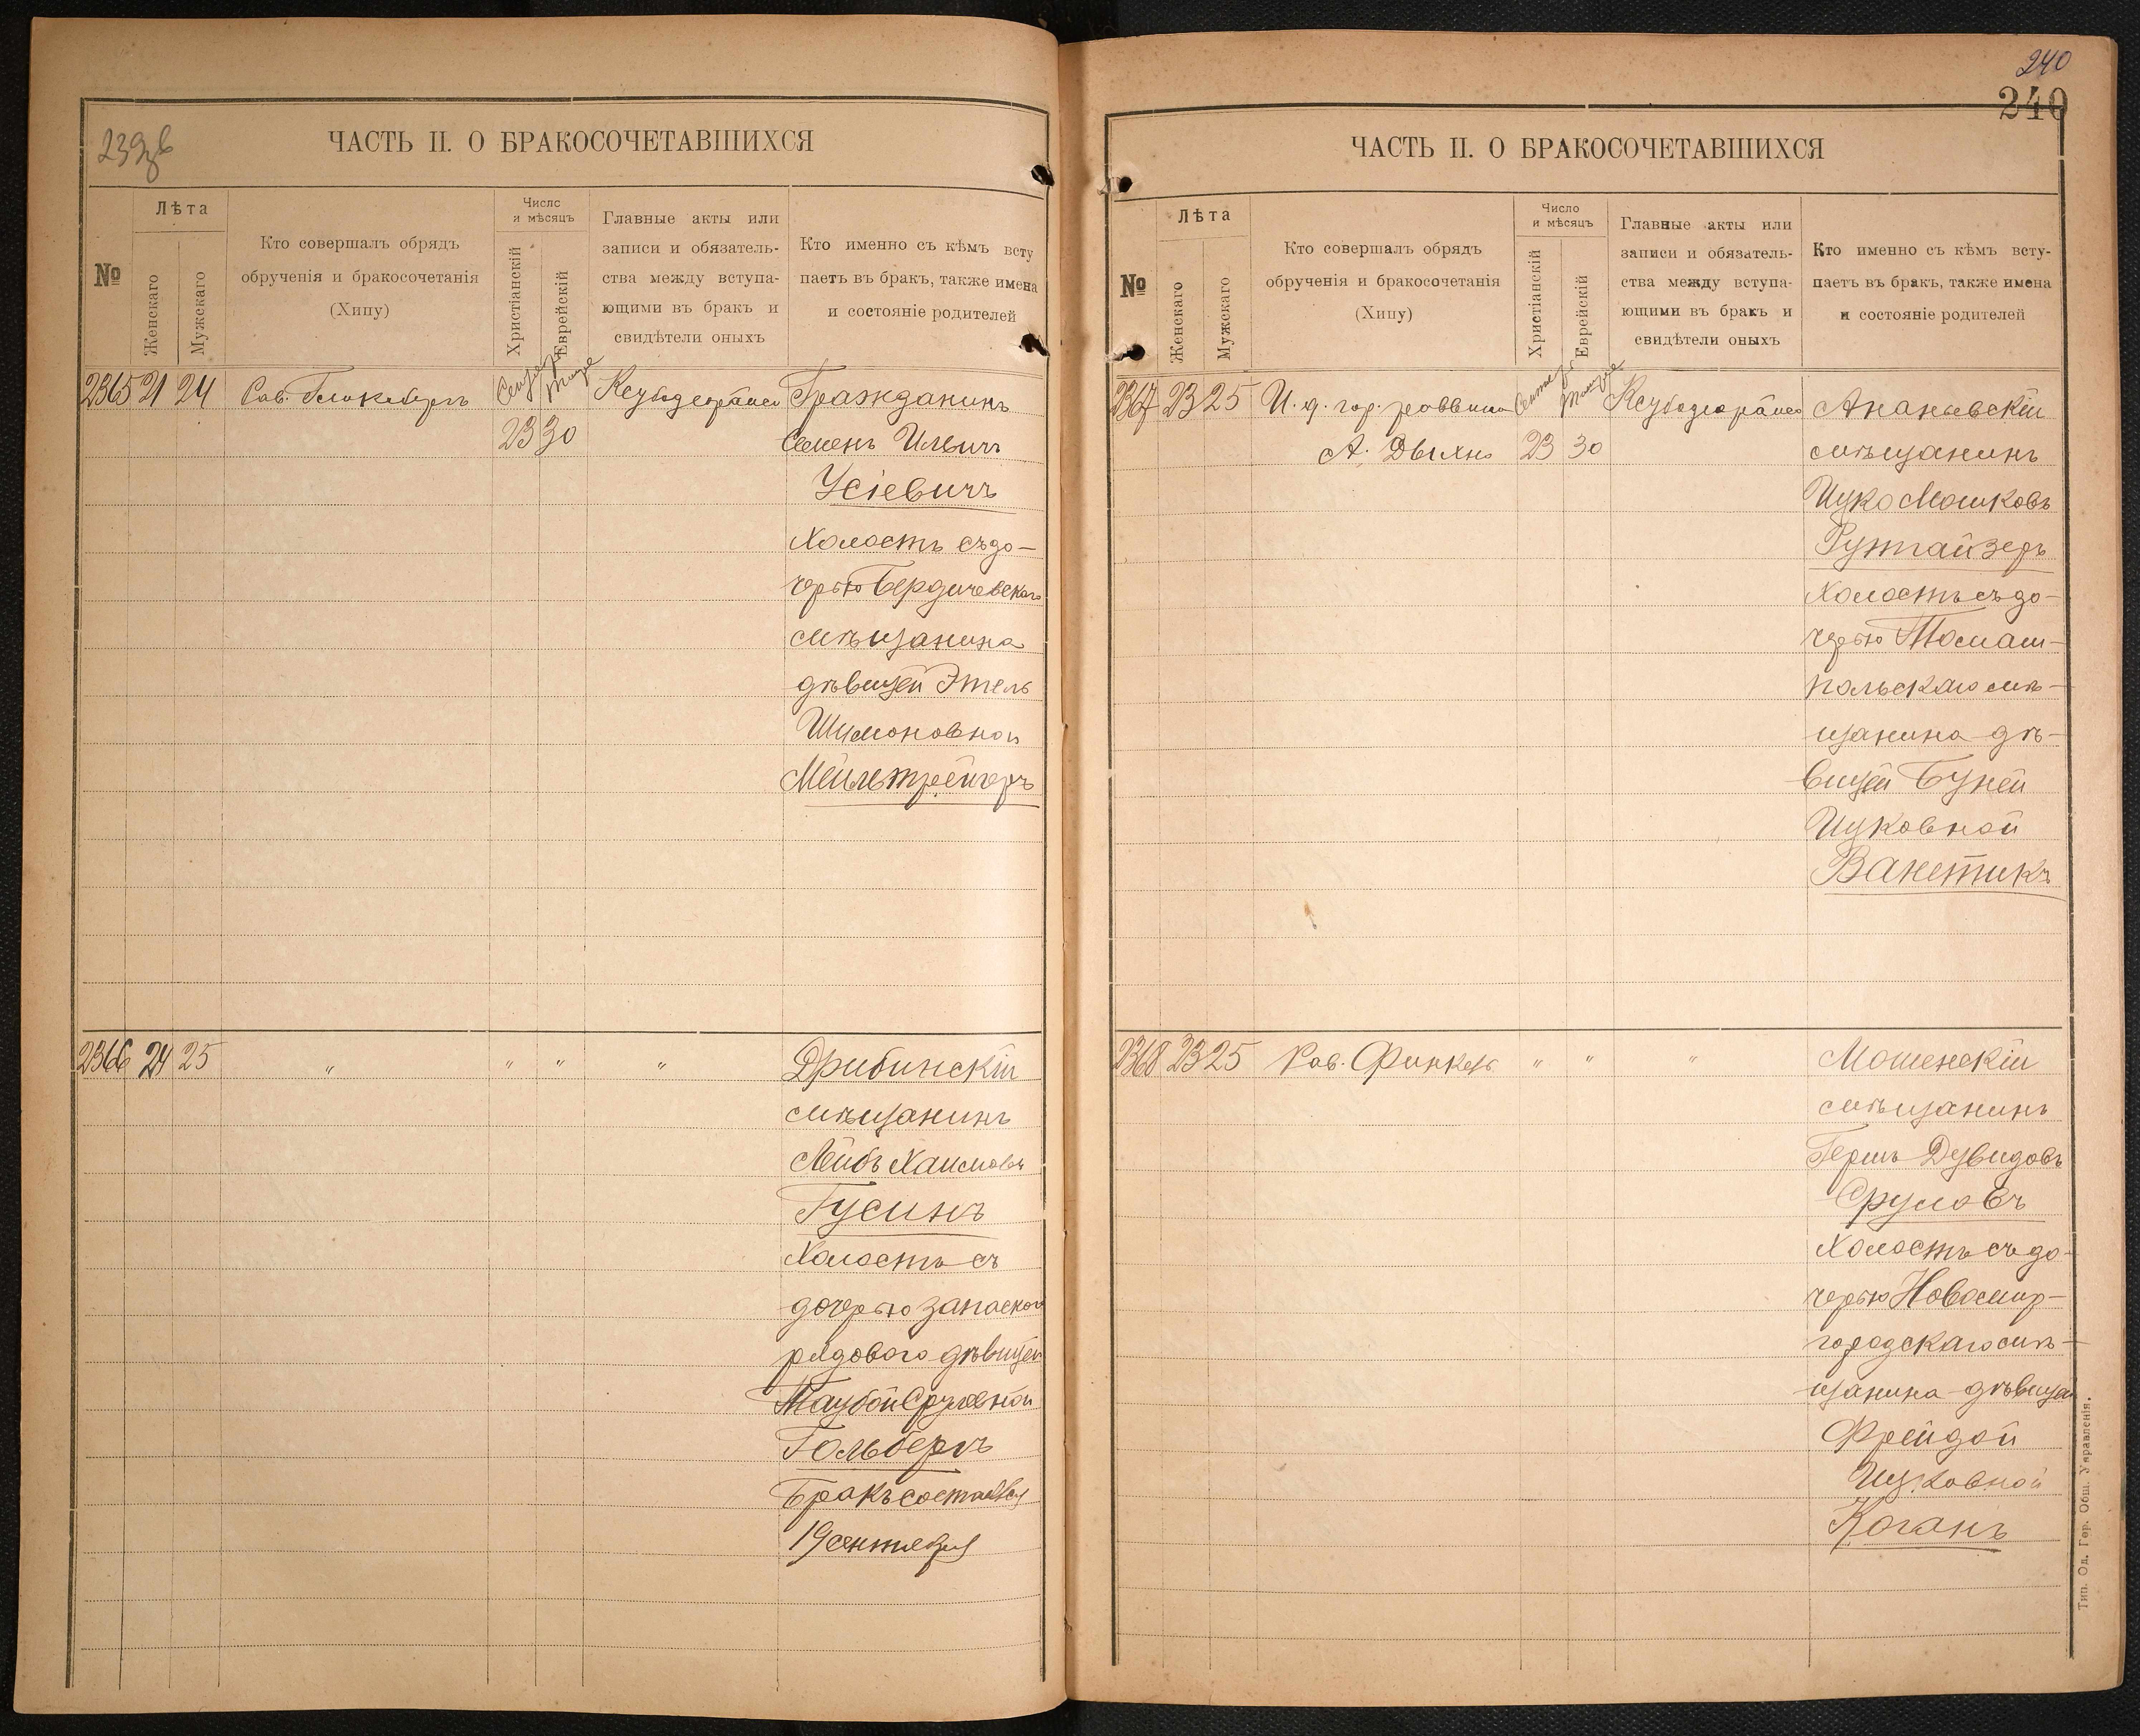 239 об
ЧАСТЬ II. О БРАКОСОЧЕТАВШИХСЯ
№
Лѣта
Женскаго
Мужскаго
Кто совершалъ обрядъ
обрученія и бракосочетанія
(Хипу)
Число
и мѣсяцъ
Христіанскій
Еврейскій
Главные акты или
записи и обязатель-
ства между вступа-
ющими въ бракъ и
свидѣтели оныхъ
Кто именно съ кѣмъ всту
паетъ въ бракъ, также имена
и состояніе родителей
2365 21 24
Рав.
23 30
Гражданинъ
Семенъ Ильичъ
Усіевичъ
холостъ съ до-
черью Бердичевскаго
мѣщанина
дѣвицей Этель
Шимоновной
Мейльтрейгеръ
2366 24 25 " " " "
Дрибинскій
мѣщанинъ
Лейбъ Хаимовъ
Гусинъ
холостъ съ
дочерью запаснаго
рядового дѣвицей
Таубой Сруловной
Гольберъ
Бракъ состоялся
19 сентября
240
240
ЧАСТЬ II. О БРАКОСОЧЕТАВШИХСЯ
№
Лѣта
Женскаго
Мужскаго
Кто совершалъ обрядъ
обрученія и бракосочетанія
(Хипу)
Число
и мѣсяцъ
Христіанскій
Еврейскій
Главные акты или
записи и обязатель-
ства между вступа-
ющими въ бракъ и
свидѣтели оныхъ
Кто именно съ кѣмъ всту-
паетъ въ бракъ, также имена
и состояніе родителей
2367 23 25 И. д. гор. раввина
А. Дыхно 23 30
Ананьевскій
мѣщанинъ
Ицко Мошковъ
Рутгайзеръ
холостъ съ до-
черью Томаш-
польскаго мѣ-
щанина дѣ-
вицей Буней
Ицковной
Ванетикъ
2368 23 25 Рав. Финкель " " "
Мошенскій
мѣщанинъ
Гершъ Дувидовъ
Сруловъ
холостъ съ до-
черью Новомир-
городскаго мѣ-
щанина дѣвицей
Фрейдой
Ицковной
Коганъ
Тип. Од. Гор. Общ. Управленія.